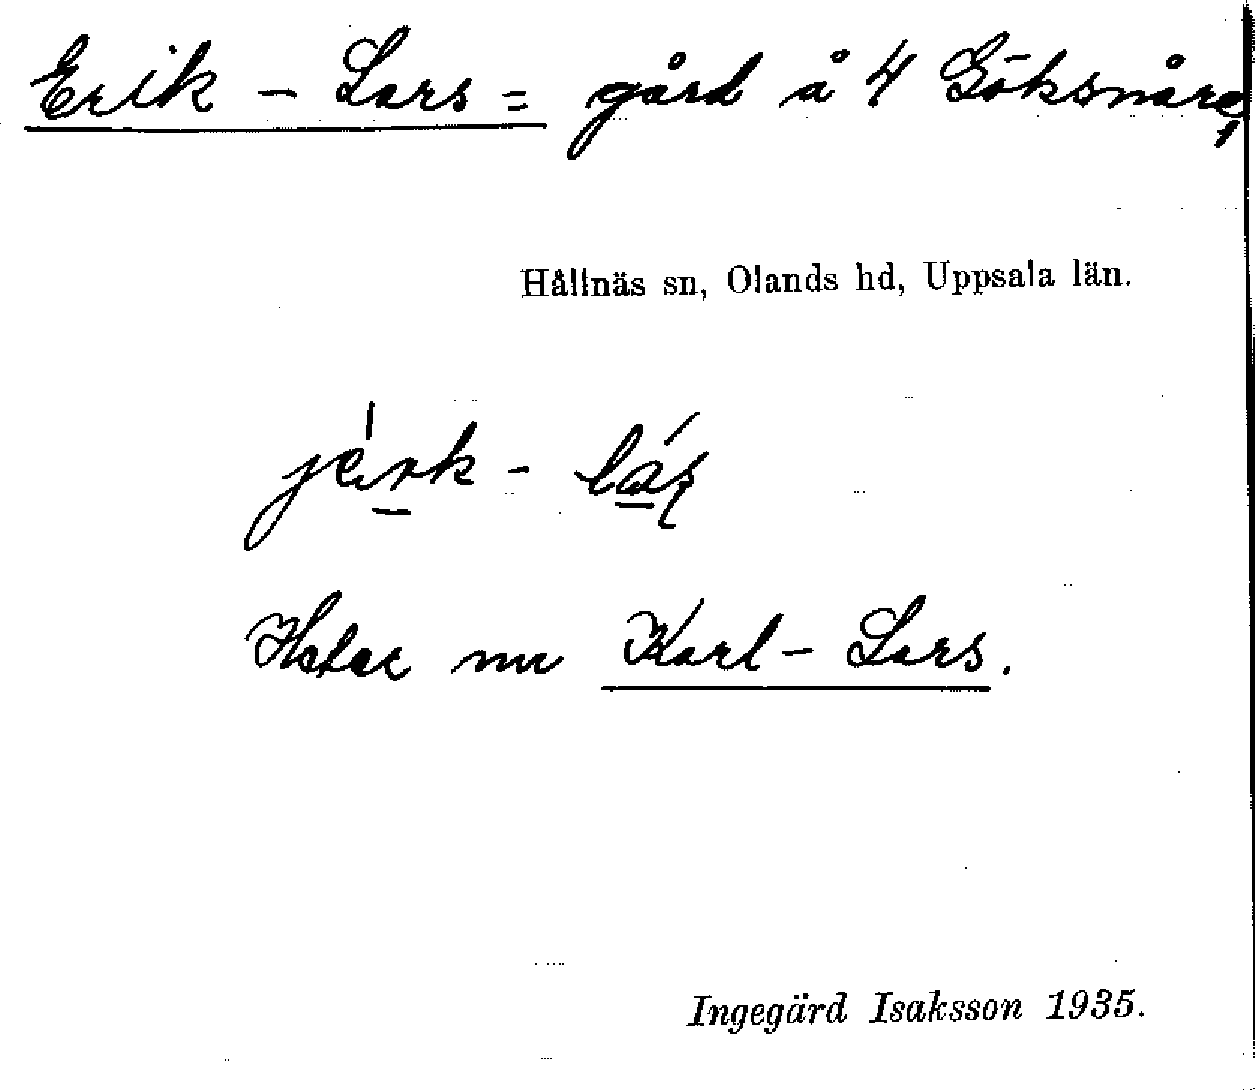 Erik - Lars = gård å 4 Göksnåre,
Hållnäs sn, Olands hd, Uppsala län.
jerk - lás
Hetar nu Karl - Lars.
Ingegärd Isaksson 1935.